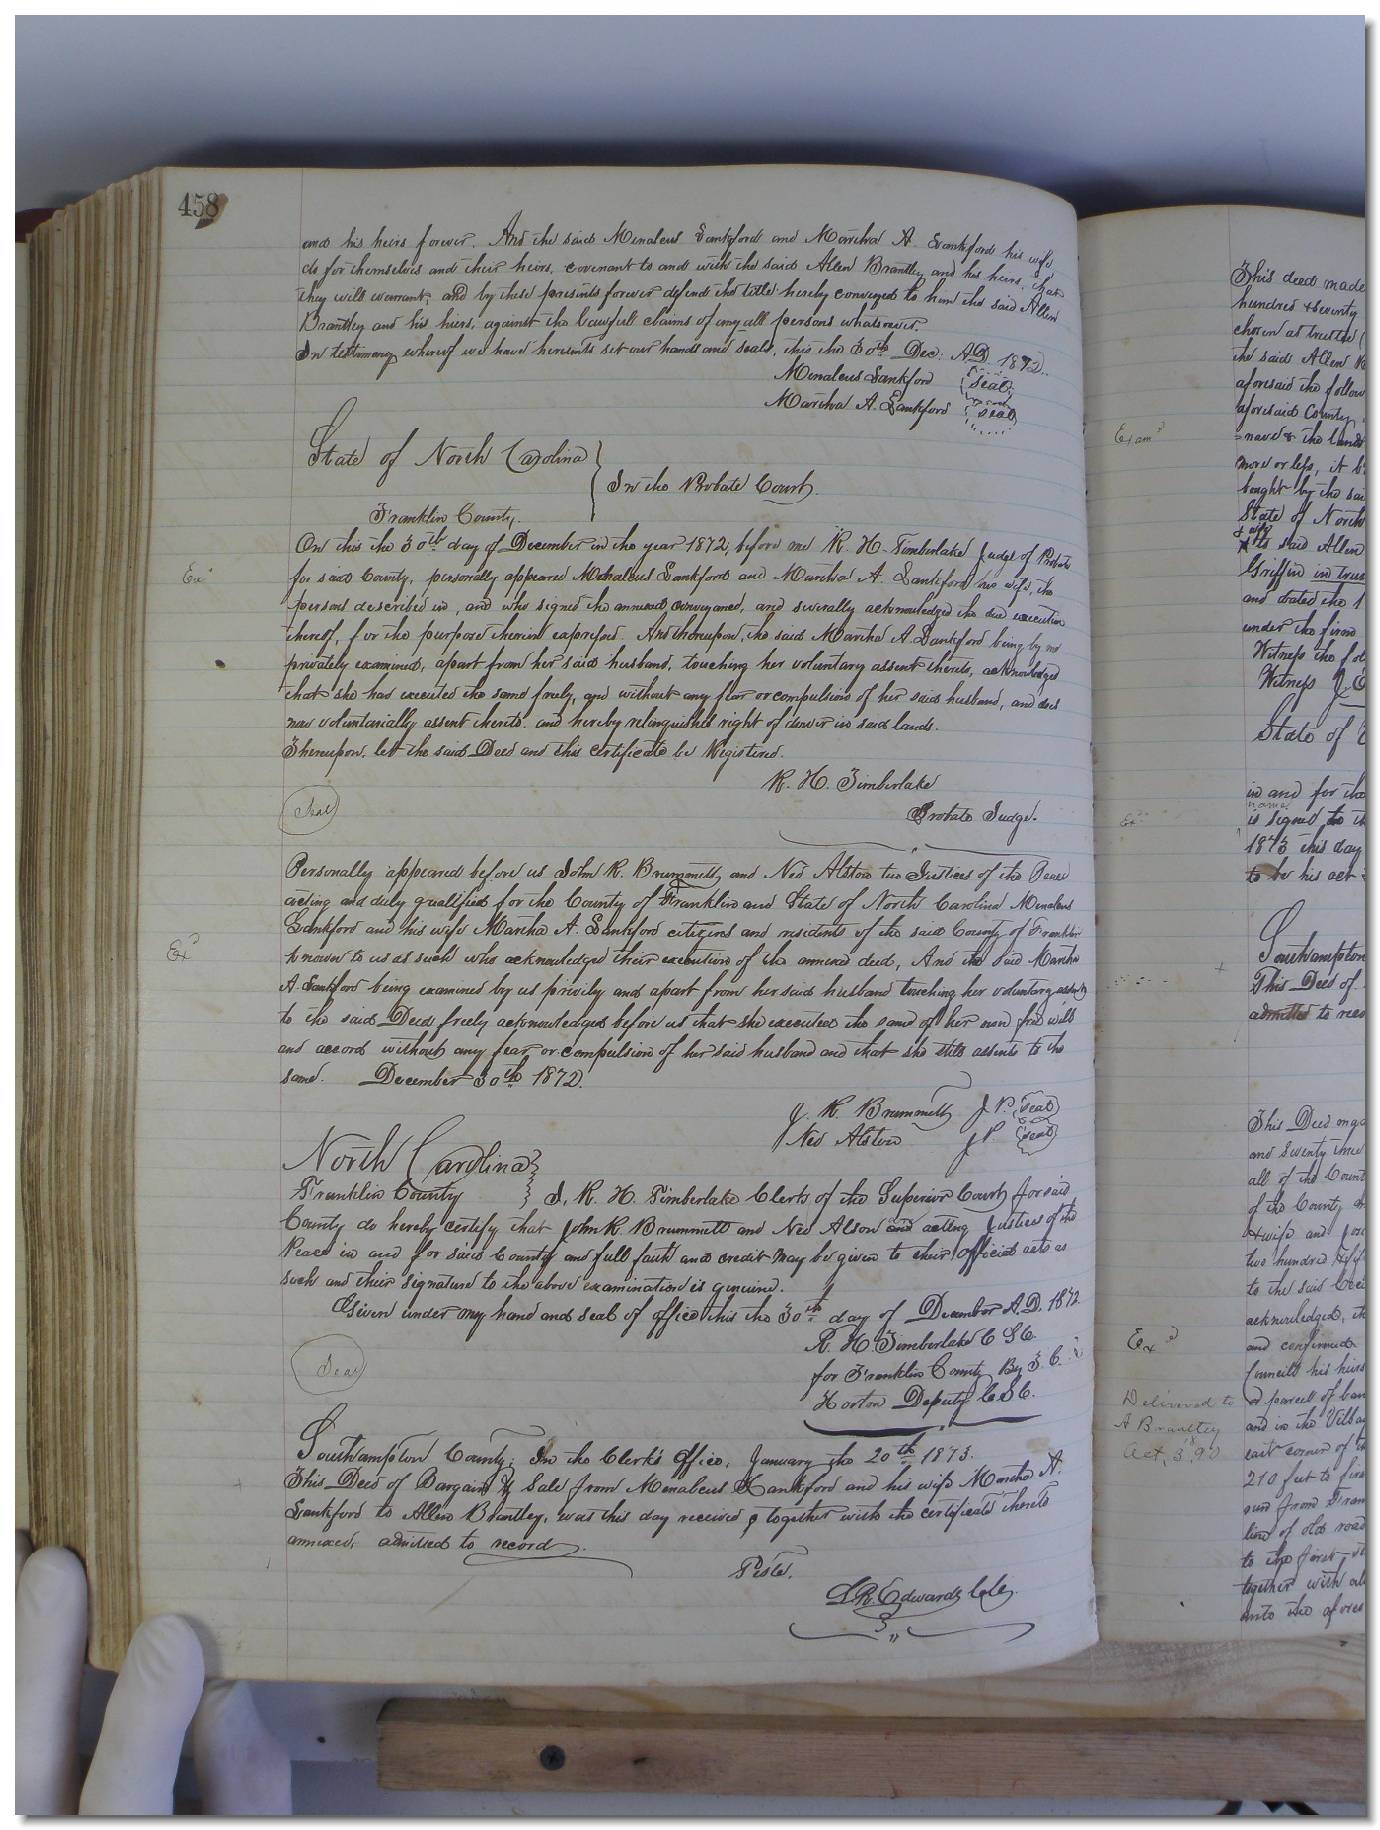 458
and his heirs forever. And the said Menalcus Lankford and Martha A. Lankford his wife
do for themselves and their heirs, covenant to and with the said Allen Brantley and his heirs, that
they will warrant, and by these presents forever defend the title hereby conveyed to him the said Allen
Brantley and his hiers, against the lawfull claims of any all persons whatsoever.
In testimony whereof we have hereunto set our hands and seals, this the 30th Dec: AD 1872.
Menalcus Lankford seal
Martha A. Lankford seal
State of North Carolina
In the Probate Court.
Franklin County.
On this the 30th day of December in the year 1872, before me R. H. Timberlake Judge of Probate
Exd
for said County, personally appeared Menalcus Lankford and Martha A. Lankford his wife, the
persons described in, and who signed the annexed conveyance, and severally acknowledged the due execution
thereof, for the purpose therein expressed. And thereupon, the said Martha A. Lankford being by me
privately examined, apart from her said husband, touching her voluntary assent thereto, acknowledged
that she had executed the same freely, and without any fear or compulsion of her said husband, and does
now voluntarially assent thereto. and hereby relinquishes right of dower in said lands.
Thereupon. let the said Deed and this certificate be Registered.
R. H. Timberlake
Seal
Probate Judge.
Personally appeared before us John R. Brummett and Ned Alston two Justices of the Peace
acting and duly qualified for the County of Franklin and State of North Carolina Menalcus
Lankford and his wife Martha A. Lankford citizens and residents of the said County of Franklin
Exd
known to us as such who acknowledged their execution of the annexed deed, And the said Martha
A. Lankford being examined by us privily and apart from her said husband touching her voluntary assent
to the said Deed freely acknowledged before us that she executed the same of her own free will
and accord without any fear or compulsion of her said husband and that she still assents to the
same. December 30th 1872.
J. R. Brummett J P. seal
Ned Alston J P. seal
North Carolina
Franklin County I, R. H. Timberlake Clerk of the Superior Court for said
County do hereby certify that John R. Brummett and Ned Alson and acting Justices of the
Peace in and for said County and full faith and credit may be given to their official acts as
such and their signature to the above examination is genuine.
Given under my hand and seal of office this the 30th day of December A.D. 1872.
R. H. Timberlake C S C.
Seal
for Franklin County By
Horton Deputy C S C.
Southampton County; In the Clerk's Office, January the 20th 1873.
This Deed of Bargain & Sale from Menalcus Lankford and his wife Martha A.
Lankford to Allen Brantley, was this day received & together with the certificate thereto
annexed, admitted to record.
Teste.
L.R. Edwards Clk.
This deed made
hundred & seventy
chosen as trustee
the said Allen
aforesaid the follow
aforesaid County
Examd
the lands
more or less, it b
bought by the sai
State of North
to said Allen
Griffin in trus
and dated the 1
under the firm
Witness the fol
Witness J.
State of
in and for the
name
Exd
is signed to th
1873 this day
to be his act
Southampton
This Deed of
admitted to reco
This Deed
and Seventy three
all of the Count
of the County
& wife and
two hundred
to the said
acknowledged, th
Exd
and confirmed
Councill his heirs
Delivered to
or parcel of lan
A Brantley
and in the Villa
Oct, 3, 90
east corner of th
210 feet to
run from Fran
line of old road
to the first
together with all
unto the afores